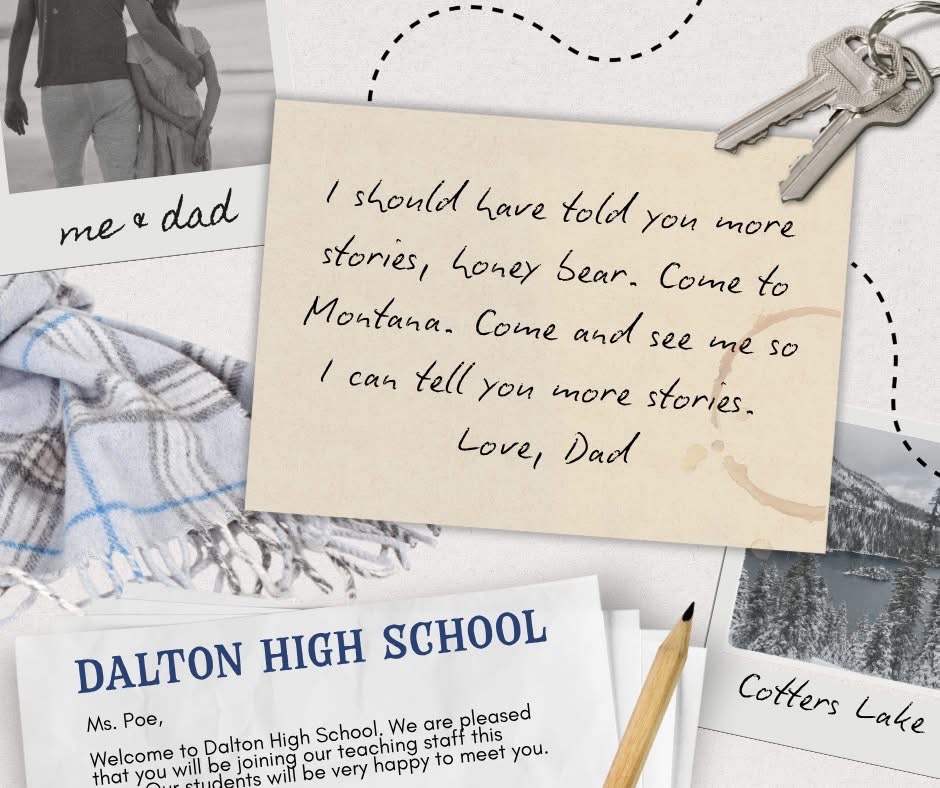 me & dad
I should have told you more
stories, honey bear. Come to
Montana. Come and see me so
I can tell you more stories.
Love, Dad
DALTON HIGH SCHOOL
Ms. Poe,
Welcome to Dalton High School. We are pleased
that you will be joining our teaching staff this
Our students will be very happy to meet you.
Cotters Lake